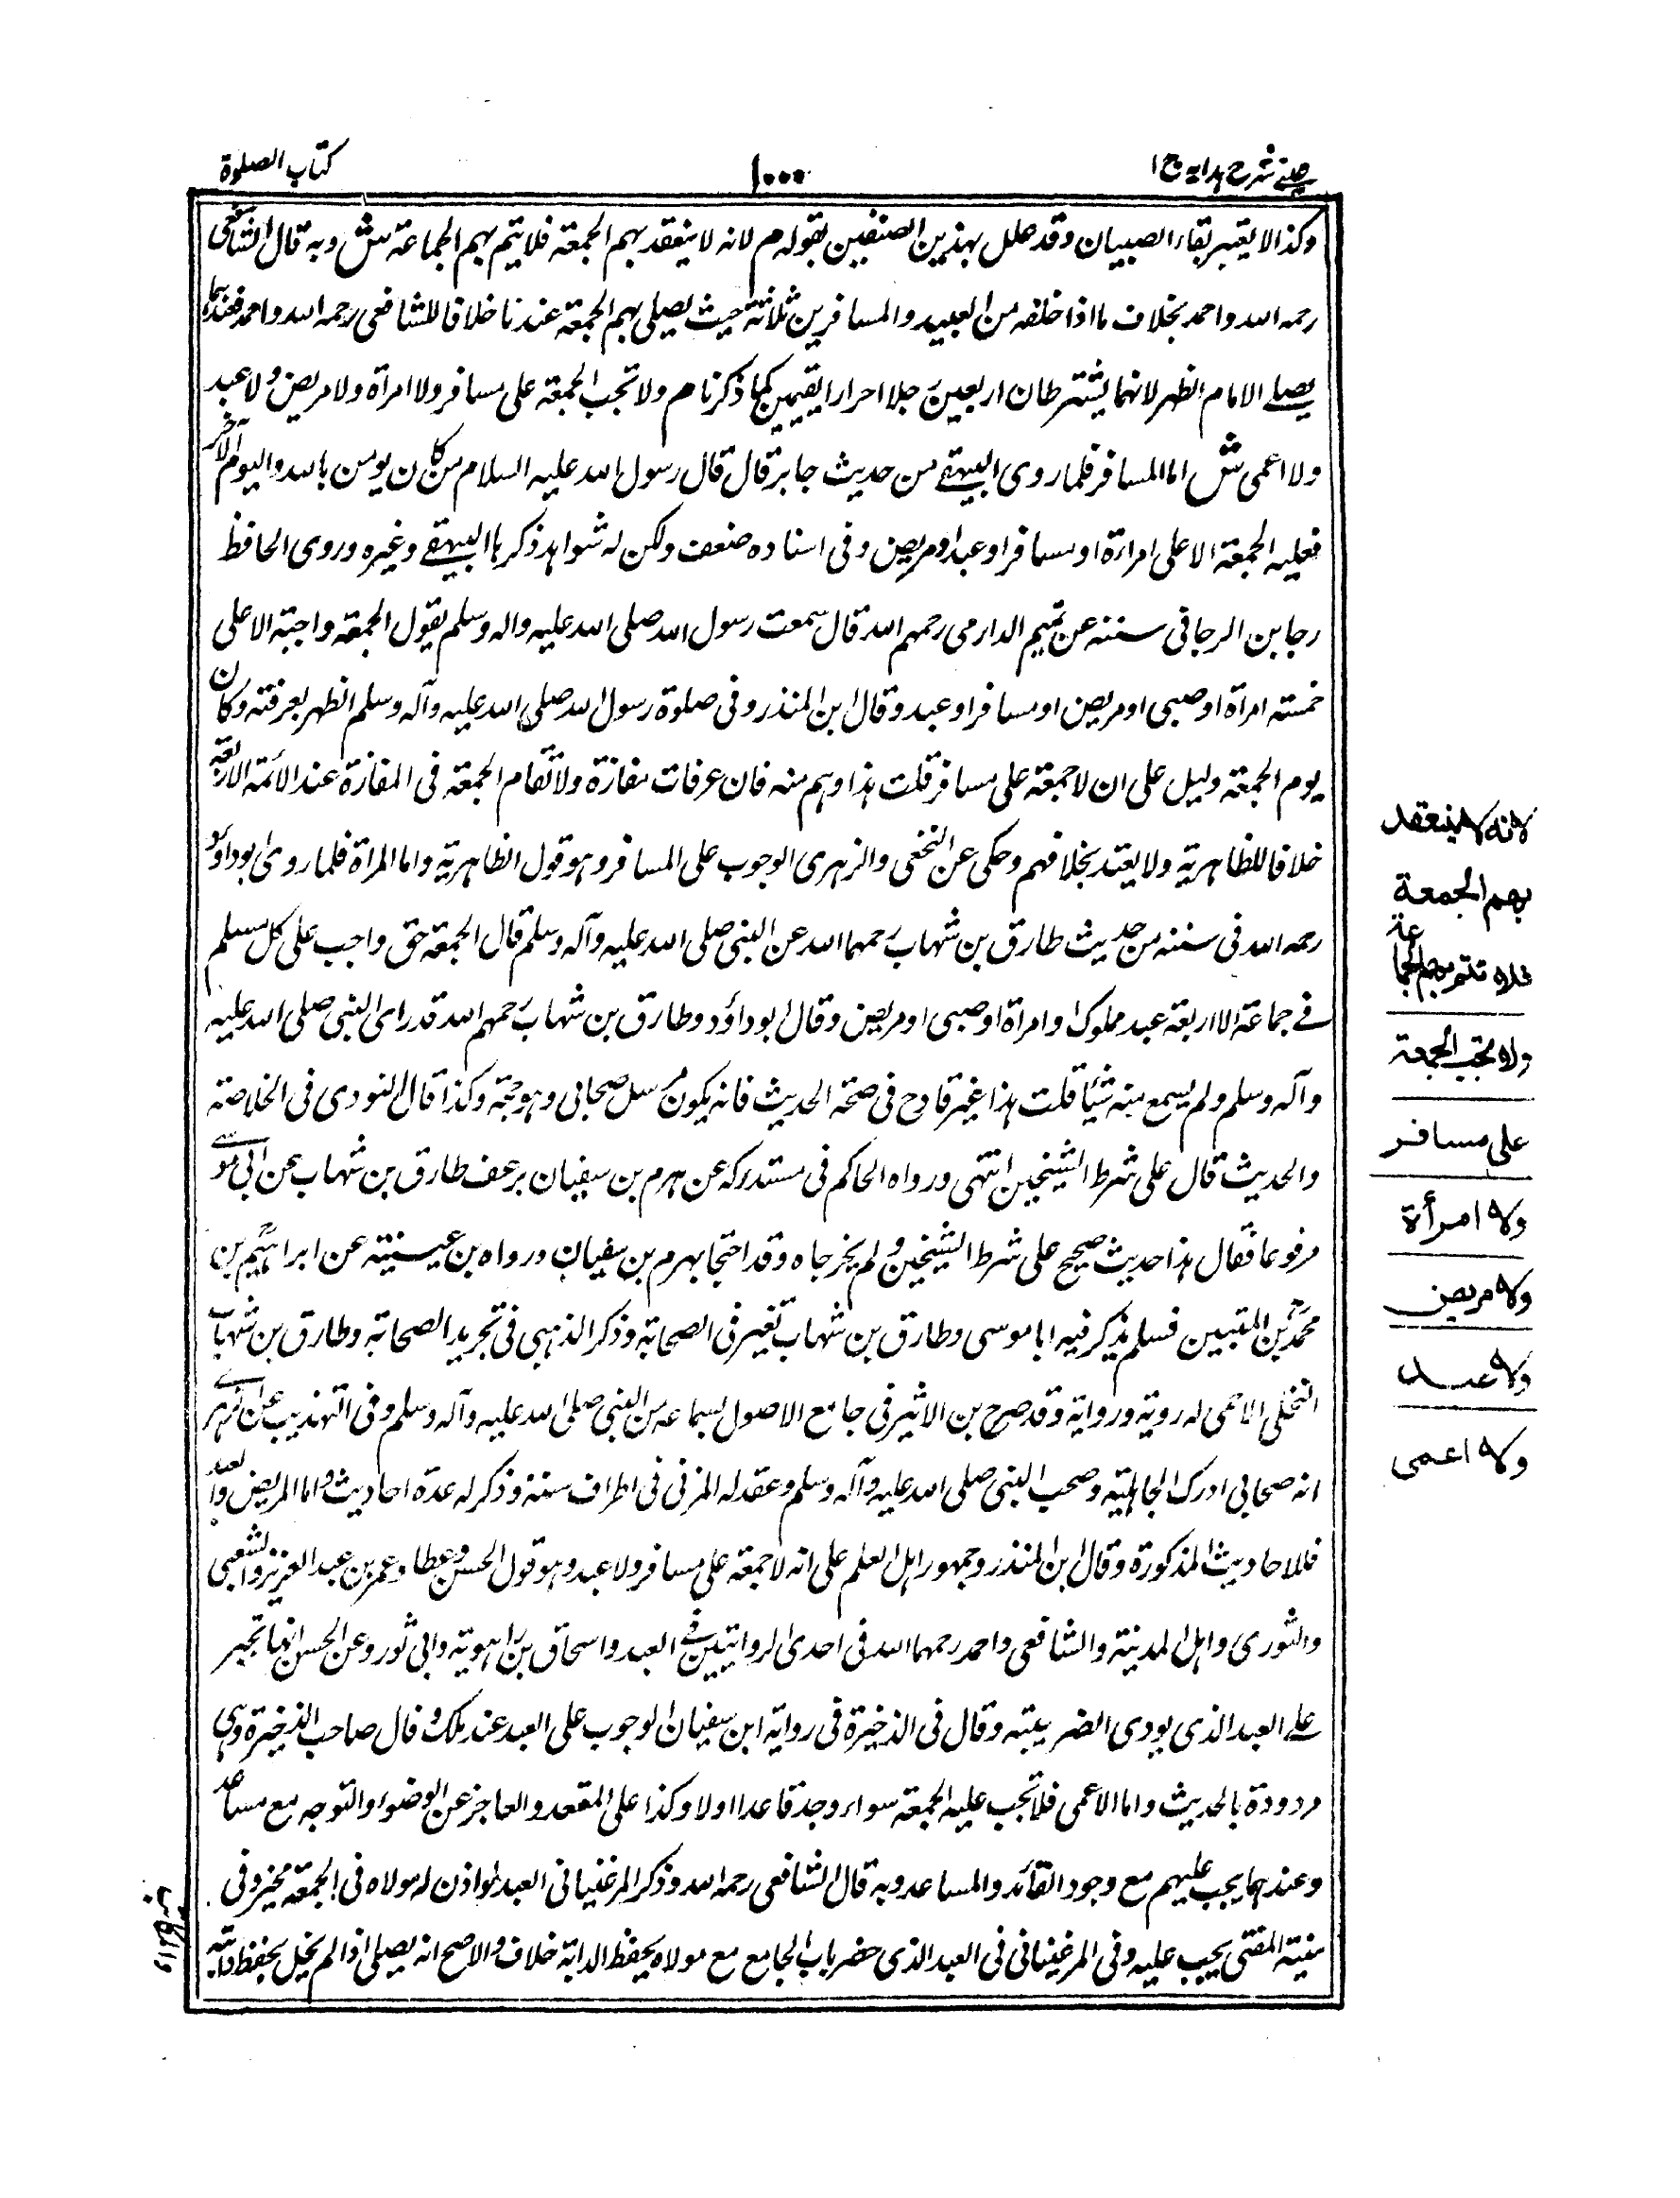 عينى شرح هدايه ج ا
١٠٠٠
كتاب الصلوة
وكذا لا يعتبر بقاء الصبيان وقد علل بهذين الصنفين بقوله م لانه لا ينعقد بهم الجمعة فلا يتم بهم الجماعة ش وبه قال الشافعى
رحمه الله واحمد بخلاف ما اذا خلفه من العبيد والمسافرين ثلاثة حيث يصلى بهم الجمعة عندنا خلافا للشافعى رحمه الله واحمد فعندهما
يصلے الامام الظهر لانهما يشترطان اربعين رجلا احرارا مقيمين كما ذكرنا م ولا تجب الجمعة على مسافر ولا امرأة ولا مريض ولا عبد
ولا اعمى ش اما المسافر فلما روى البيهقے من حديث جابر قال قال رسول الله عليه السلام من كان يومن بالله واليوم الآخر
فعليه الجمعة الا على امراءة او مسافر او عبد او مريض وفى اسناده ضعف ولكن له شواهد ذكرها البيهقے وغيره وروى الحافظ
رجا بن الرجا فى سننه عن تميم الدارمى رحمهم الله قال سمعت رسول الله صلى الله عليه واله وسلم يقول الجمعة واجبة الا على
خمسته امرأة او صبى او مريض او مسافر او عبد وقال ابن المنذر وفى صلوة رسول الله صلى الله عليه وآله وسلم الظهر بعرفته وكان
يوم الجمعة دليل على ان لا جمعة على مسافر قلت هذا وهم منه فان عرفات مفازة ولا تقام الجمعة فى المفازة عند الائمة الاربعة
خلافا للظاهرية ولا يعتد بخلافهم وحكى عن النخعى والزهرى الوجوب على المسافر وهو قول الظاهرية واما المرأة فلما روى ابو داؤد
رحمه الله فى سننه من حديث طارق بن شهاب رحمهما الله عن النبى صلى الله عليه وآله وسلم قال الجمعة حق واجب على كل مسلم
فے جماعة الا اربعة عبد مملوك او امرأة او صبى او مريض وقال ابو داؤد وطارق بن شهاب رحمهم الله قد راى النبى صلى الله عليه
وآله وسلم ولم يسمع منه شيئا قلت هذا غير قادح فى صحة الحديث فانه يكون مرسل صحابى وهو حجة وكذا قال النووى فى الخلاصة
والحديث قال على شرط الشيخين انتهى ورواه الحاكم فى مستدركه عن هرم بن سفيان طارق بن شهاب عن ابى موسے
مرفوعا فقال هذا حديث صحيح على شرط الشيخين ولم يخرجاه وقد احتجا بهرم بن سفيان ورواه بن عيينة عن ابراهيم بن
محمد بن فلم يذكر فيه ابا موسى وطارق بن شهاب فى الصحابة وذكر الذهبى فى تجريد الصحابة وطارق بن شهاب
الاحمى له روية ورواية وقد صرح بن الاثير فى جامع الاصول بسماعه من النبى صلى الله عليه وآله وسلم وفى التهذيب عن الزهرے
انه صحابى ادرك الجاهلية وصحب النبى صلى الله عليه وآله وسلم وعقد له المزنى فى اطراف سننه وذكر له عدة احاديث واما المريض والعبد
فللاحاديث المذكورة وقال ابن المنذر وجمهور اهل العلم على انه لا جمعة على مسافر ولا عبد وهو قول الحسن وعطا وعمر بن عبد العزيز والشعبى
والثورى واهل المدينة والشافعى واحمد رحمهما الله فى احدى الروايتين فے العبد واسحاق بن راهوية وابى ثور وعن الحسن انها تجبر
علے العبد الذى يودى الضريبته وقال فى الذخيرة فى رواية ابن سفيان الوجوب على العبد عند ملك وقال صاحب الذخيرة وهى
مردودة بالحديث واما الاعمى فلا تجب عليه الجمعة سواء وجد قاعدا اولا وكذا على المقعد والعاجز عن الوضوء والتوجه مع مساعد
وعندهما يجب عليهم مع وجود القائد والمساعد وبه قال الشافعى رحمه الله وذكر المرغنيانى العبد لو اذن له مولاه فى الجمعة مخير وفى
منية المفتى يجب عليه وفى المرغينانى فى العبد الذى حضر باب الجامع مع مولاه يحفظ الدابة خلاف والاصح انه يصلى اذا لم يخل بحفظ دابته
لانه لا ينعقد
بهم الجمعة
فلا تتم بهم الجماعة
ولا تجب الجمعة
على مسافر
ولا امرأة
ولا مريض
ولا عبد
ولا اعمى